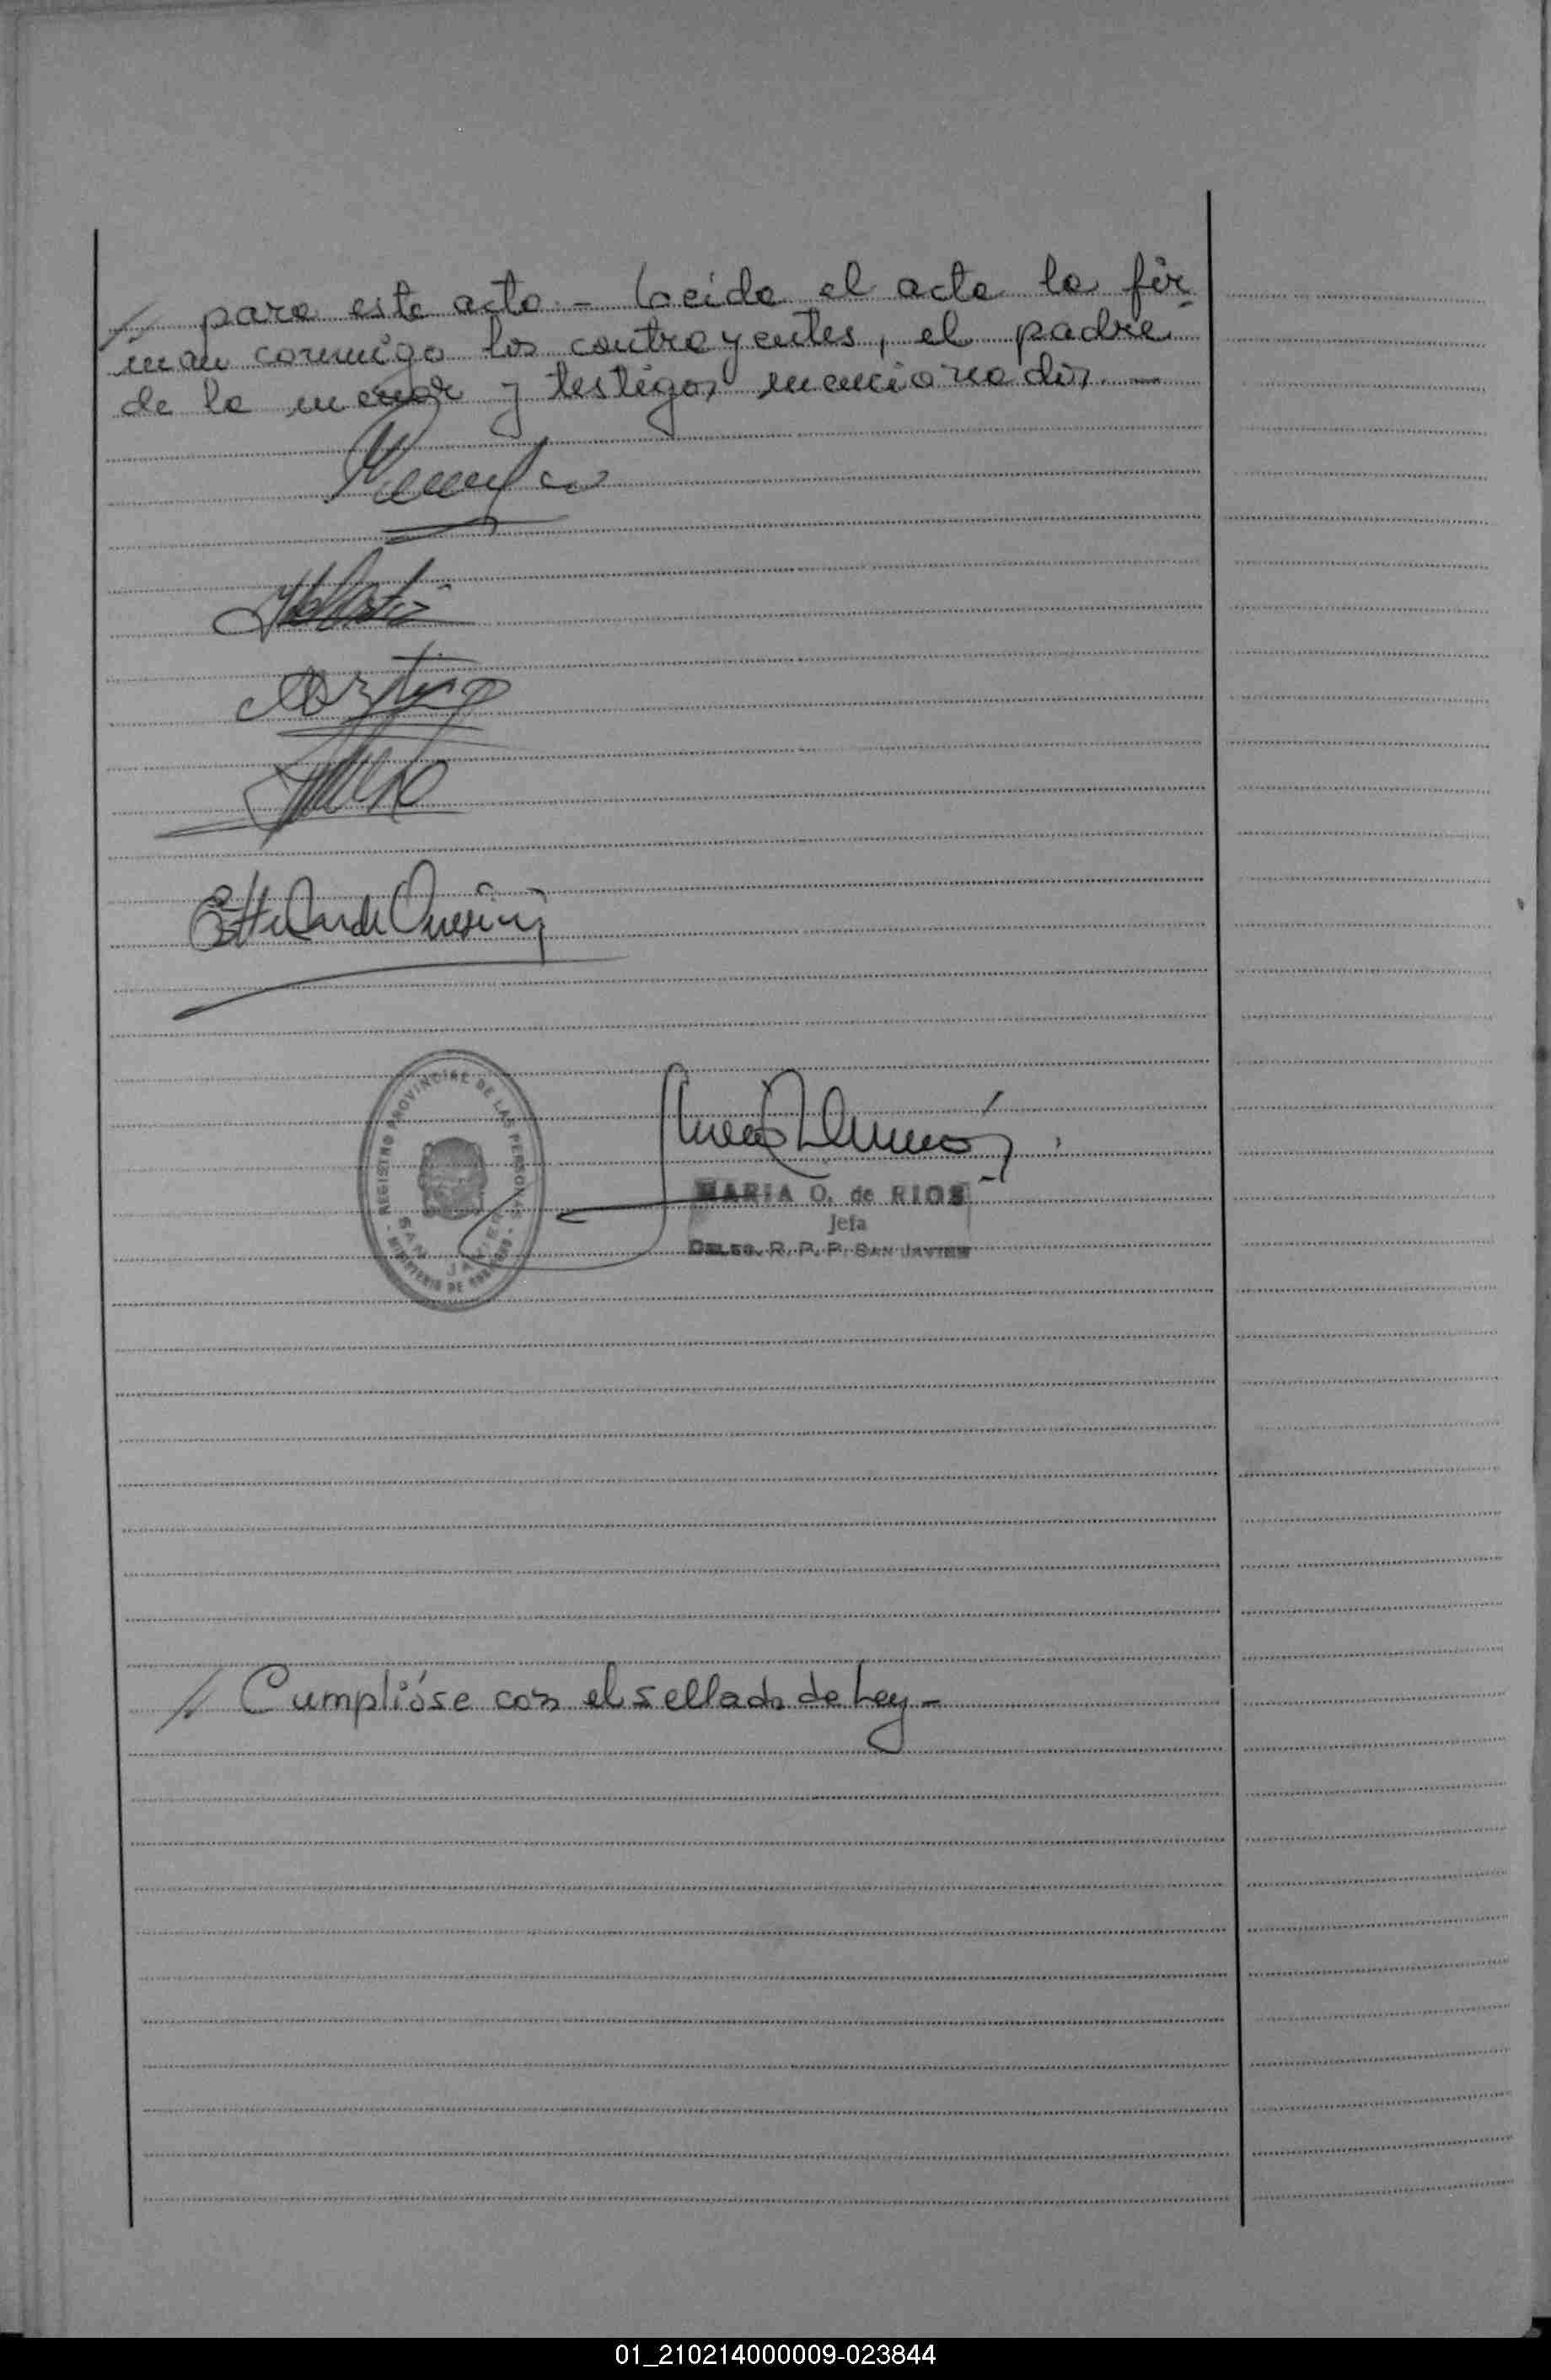 // para este acto.- Leida el acta la fir
man conmigo los contrayentes, el padre
de la menor y testigos mencionados.-
REGISTRO PROVINCIAL DE LAS PERSONAS
SAN JAVIER
MINISTERIO DE
MARIA O. de RIOS
Jefa
DELEG. R. P. P. SAN JAVIER
// Cumplióse con el sellado de Ley-
01_210214000009-023844